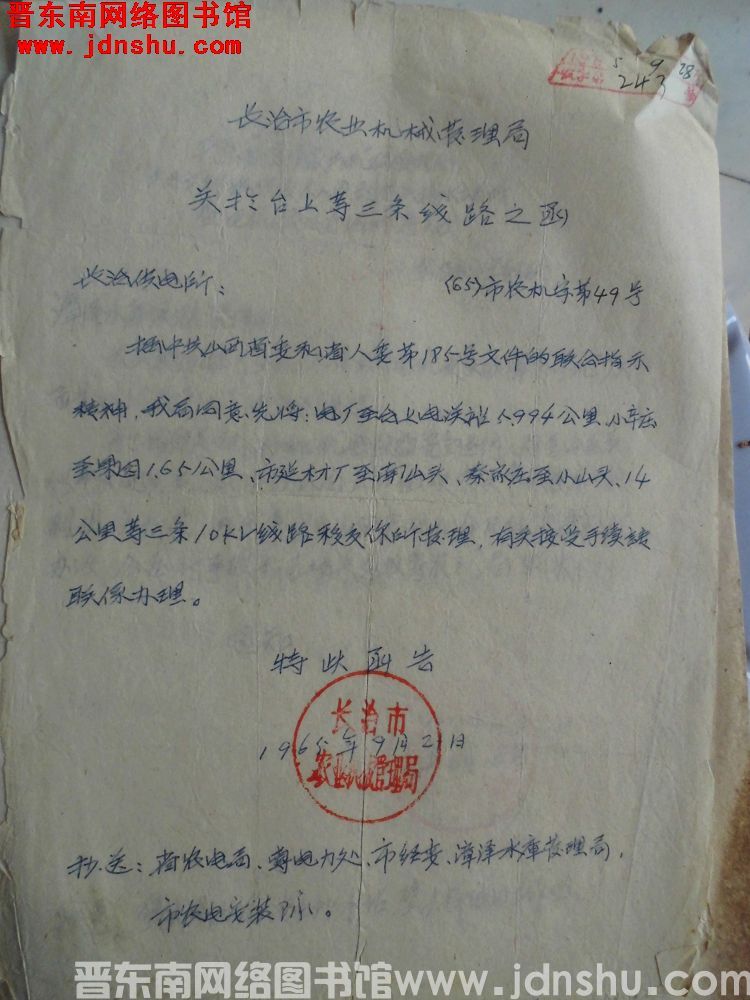 晋东南网络图书馆
www.jdnshu.com
5 9 28
243
长治市农业机械管理局
关于台上等三条线路之函
长治供电所：
(65)市农机字第49号
据中共山西省委和省人委第185号文件的联合指示
精神，我局同意先将：电厂至台上电灌站5.994公里，小辛庄
至果园1.65公里、市延材厂至南仙头、秦家庄至小山头、14
公里等三条10KV线路移交你所管理，有关接受手续请
联係办理。
特此函告
长治市
农业机械管理局
1965年9月21日
抄送：省农电局、专电力处、市经委、漳泽水库管理局，
市农电安装队。
晋东南网络图书馆www.jdnshu.com